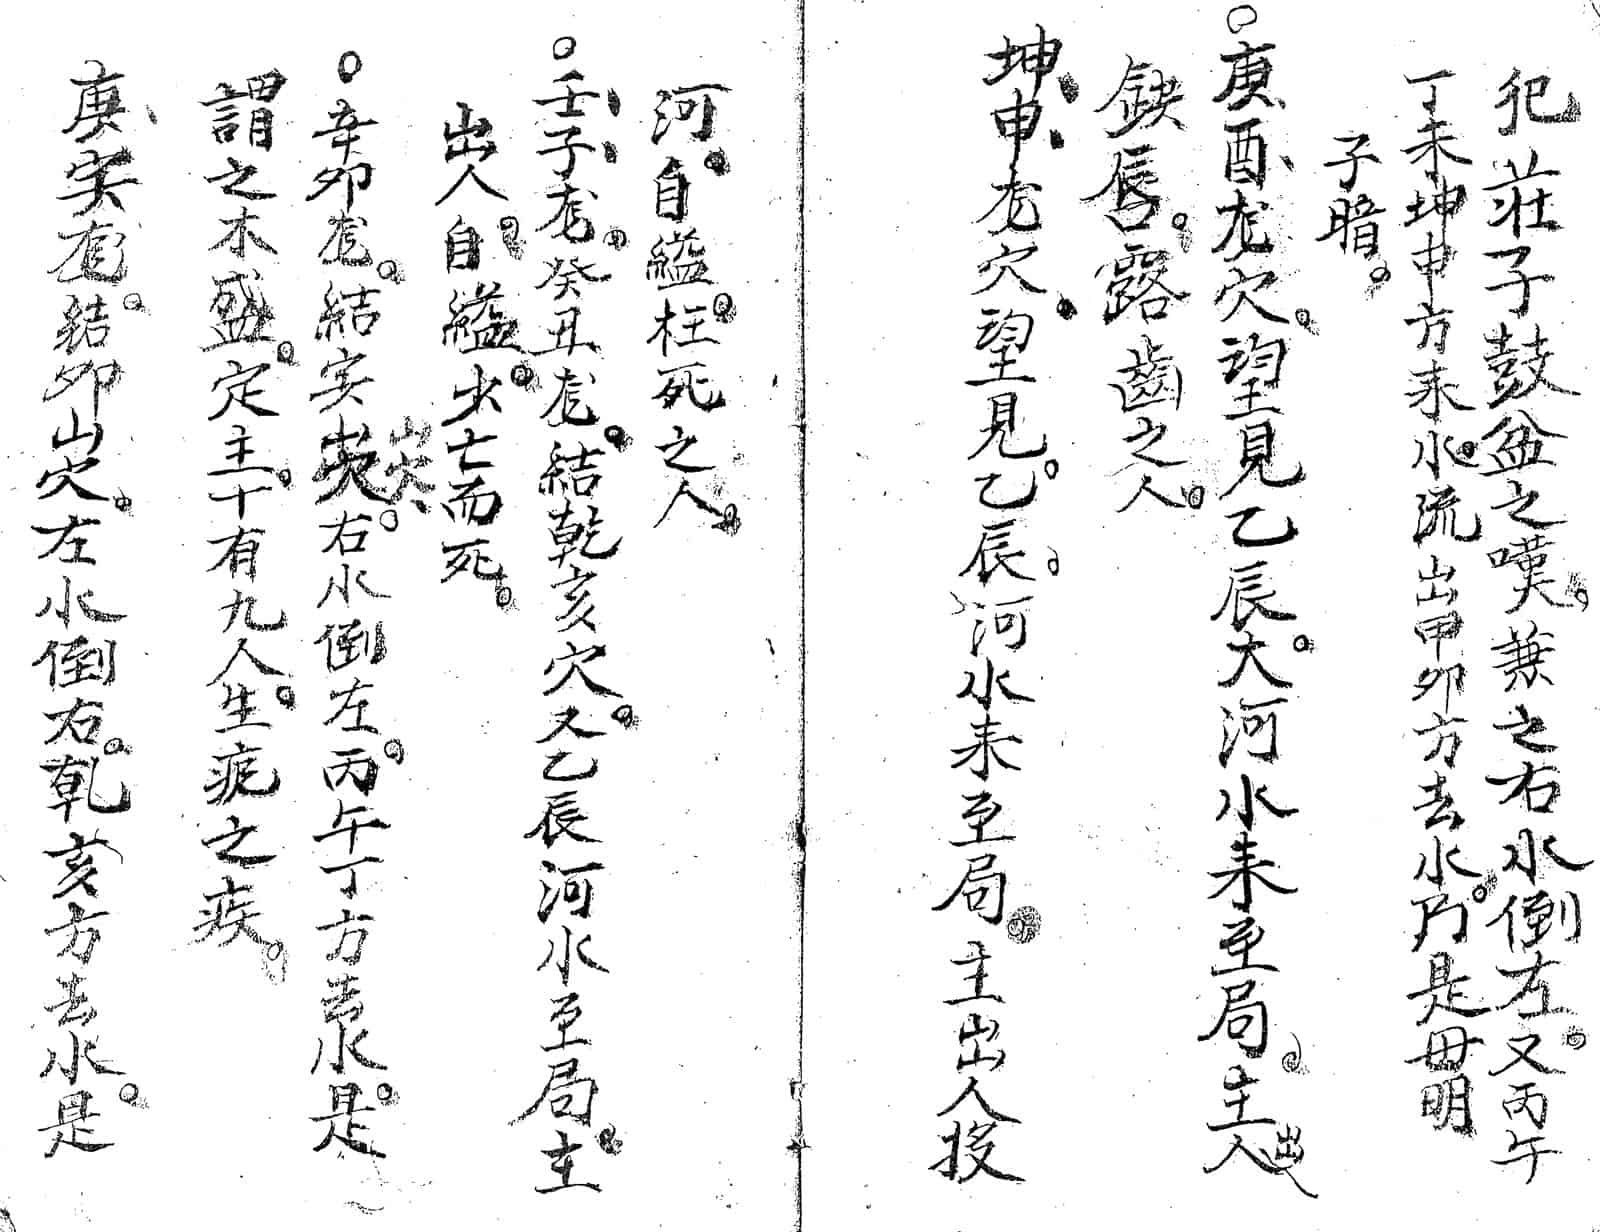 犯莊子鼓盆之嘆兼之右水倒左又丙午
丁未坤申方来水流出甲卯方去水乃是毋明
子暗
庚酉龙穴望見乙辰大河水来至局主出人
缺唇露齒之人
坤申龙穴望見乙辰河水来至局主出人投
河自縊枉死之人
壬子龙癸丑龙結乾亥穴又乙辰河水至局主
出人自縊少亡而死
辛卯龙結寅山穴右水倒左丙午丁方去水是
謂之木盛定主十有九人生疕之疾
庚寅龙結卯山穴左水倒右乾亥方去水是